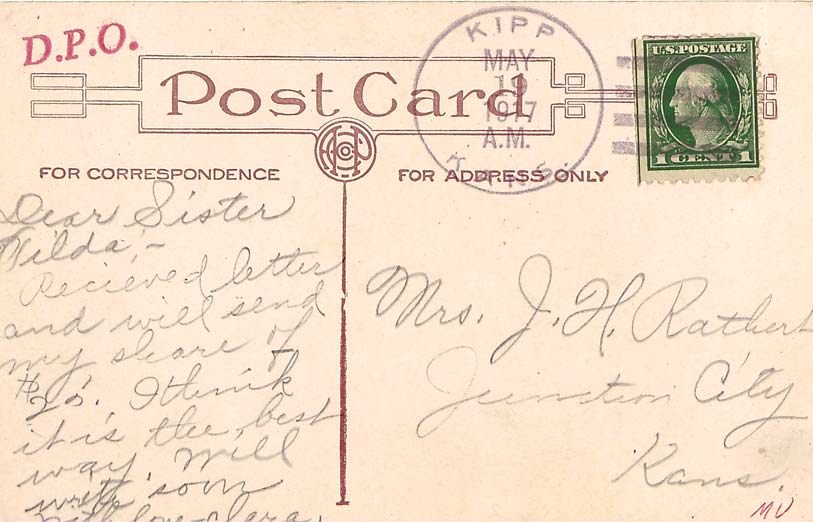 D.P.O.
Post Card
KIPP
MAY
19
1917
A.M.
KANS.
U.S. POSTAGE
1 CENT 1
FOR CORRESPONDENCE
FOR ADDRESS ONLY
Dear Sister
Wilda,-
Recieved letter
and will send
my share of
it is the best
way. Will
write soon
with love - Clara.
Mrs. J. H. Rathert
Junction City
Kans.
MU